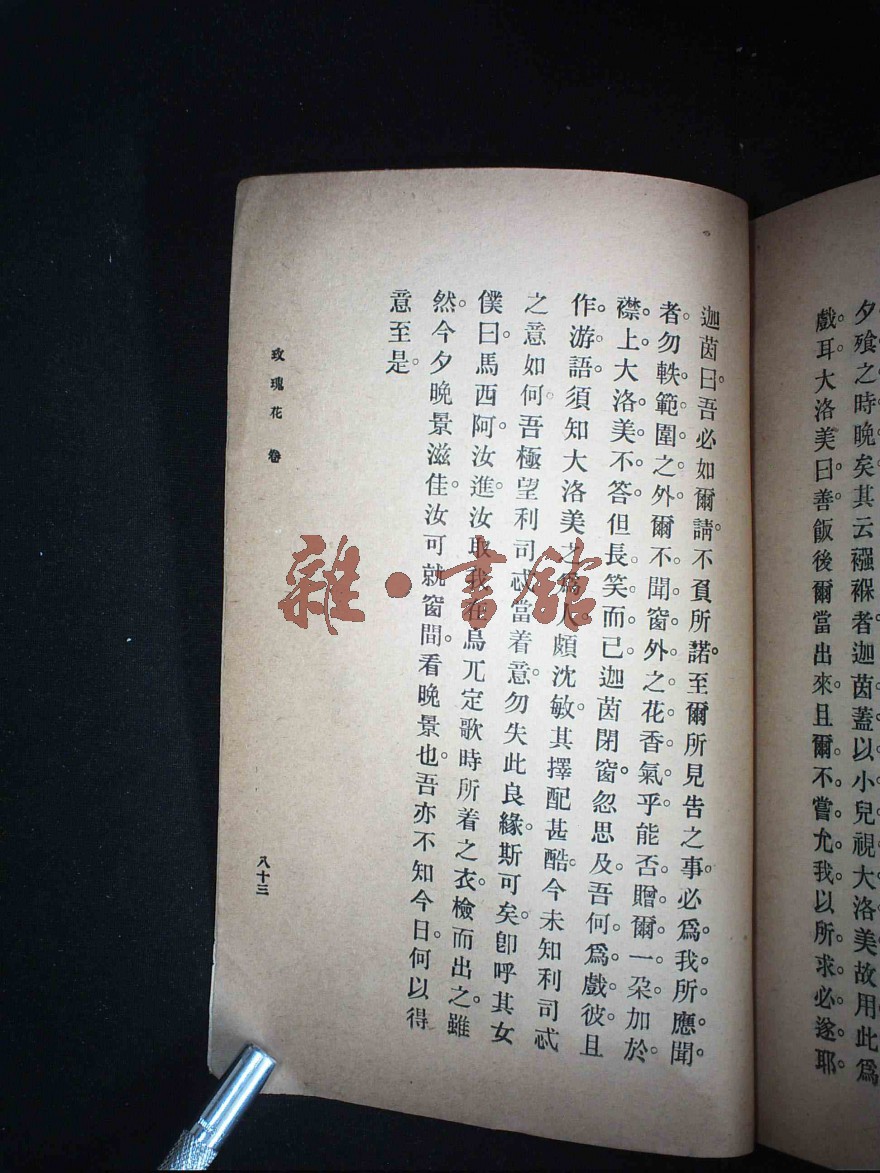 夕飱之時晚矣。其云襁褓者。迦茵蓋以小兒視大洛美。故用此爲
戲耳。大洛美曰。善。飯後爾當出來。且爾不嘗允我以所求必遂耶。
迦茵曰。吾必如爾請。不負所諾。至爾所見告之事。必爲我所應聞
者。勿軼範圍之外。爾不聞窗外之花香氣乎。能否贈爾一朶。加於
襟上。大洛美不答。但長笑而已。迦茵閉窗。忽思及吾何爲戲彼。且
作游語。須知大洛美之爲人。頗沈敏。其擇配甚酷。今未知利司忒
之意如何。吾極望利司忒當着意。勿失此良緣。斯可矣。卽呼其女
僕曰。馬西阿。汝進。汝取我在烏兀定歌時所着之衣。檢而出之。雖
然。今夕晚景滋佳。汝可就窗間。看晚景也。吾亦不知今日。何以得
意至是。
玫瑰花 卷
八十三
雜·書館